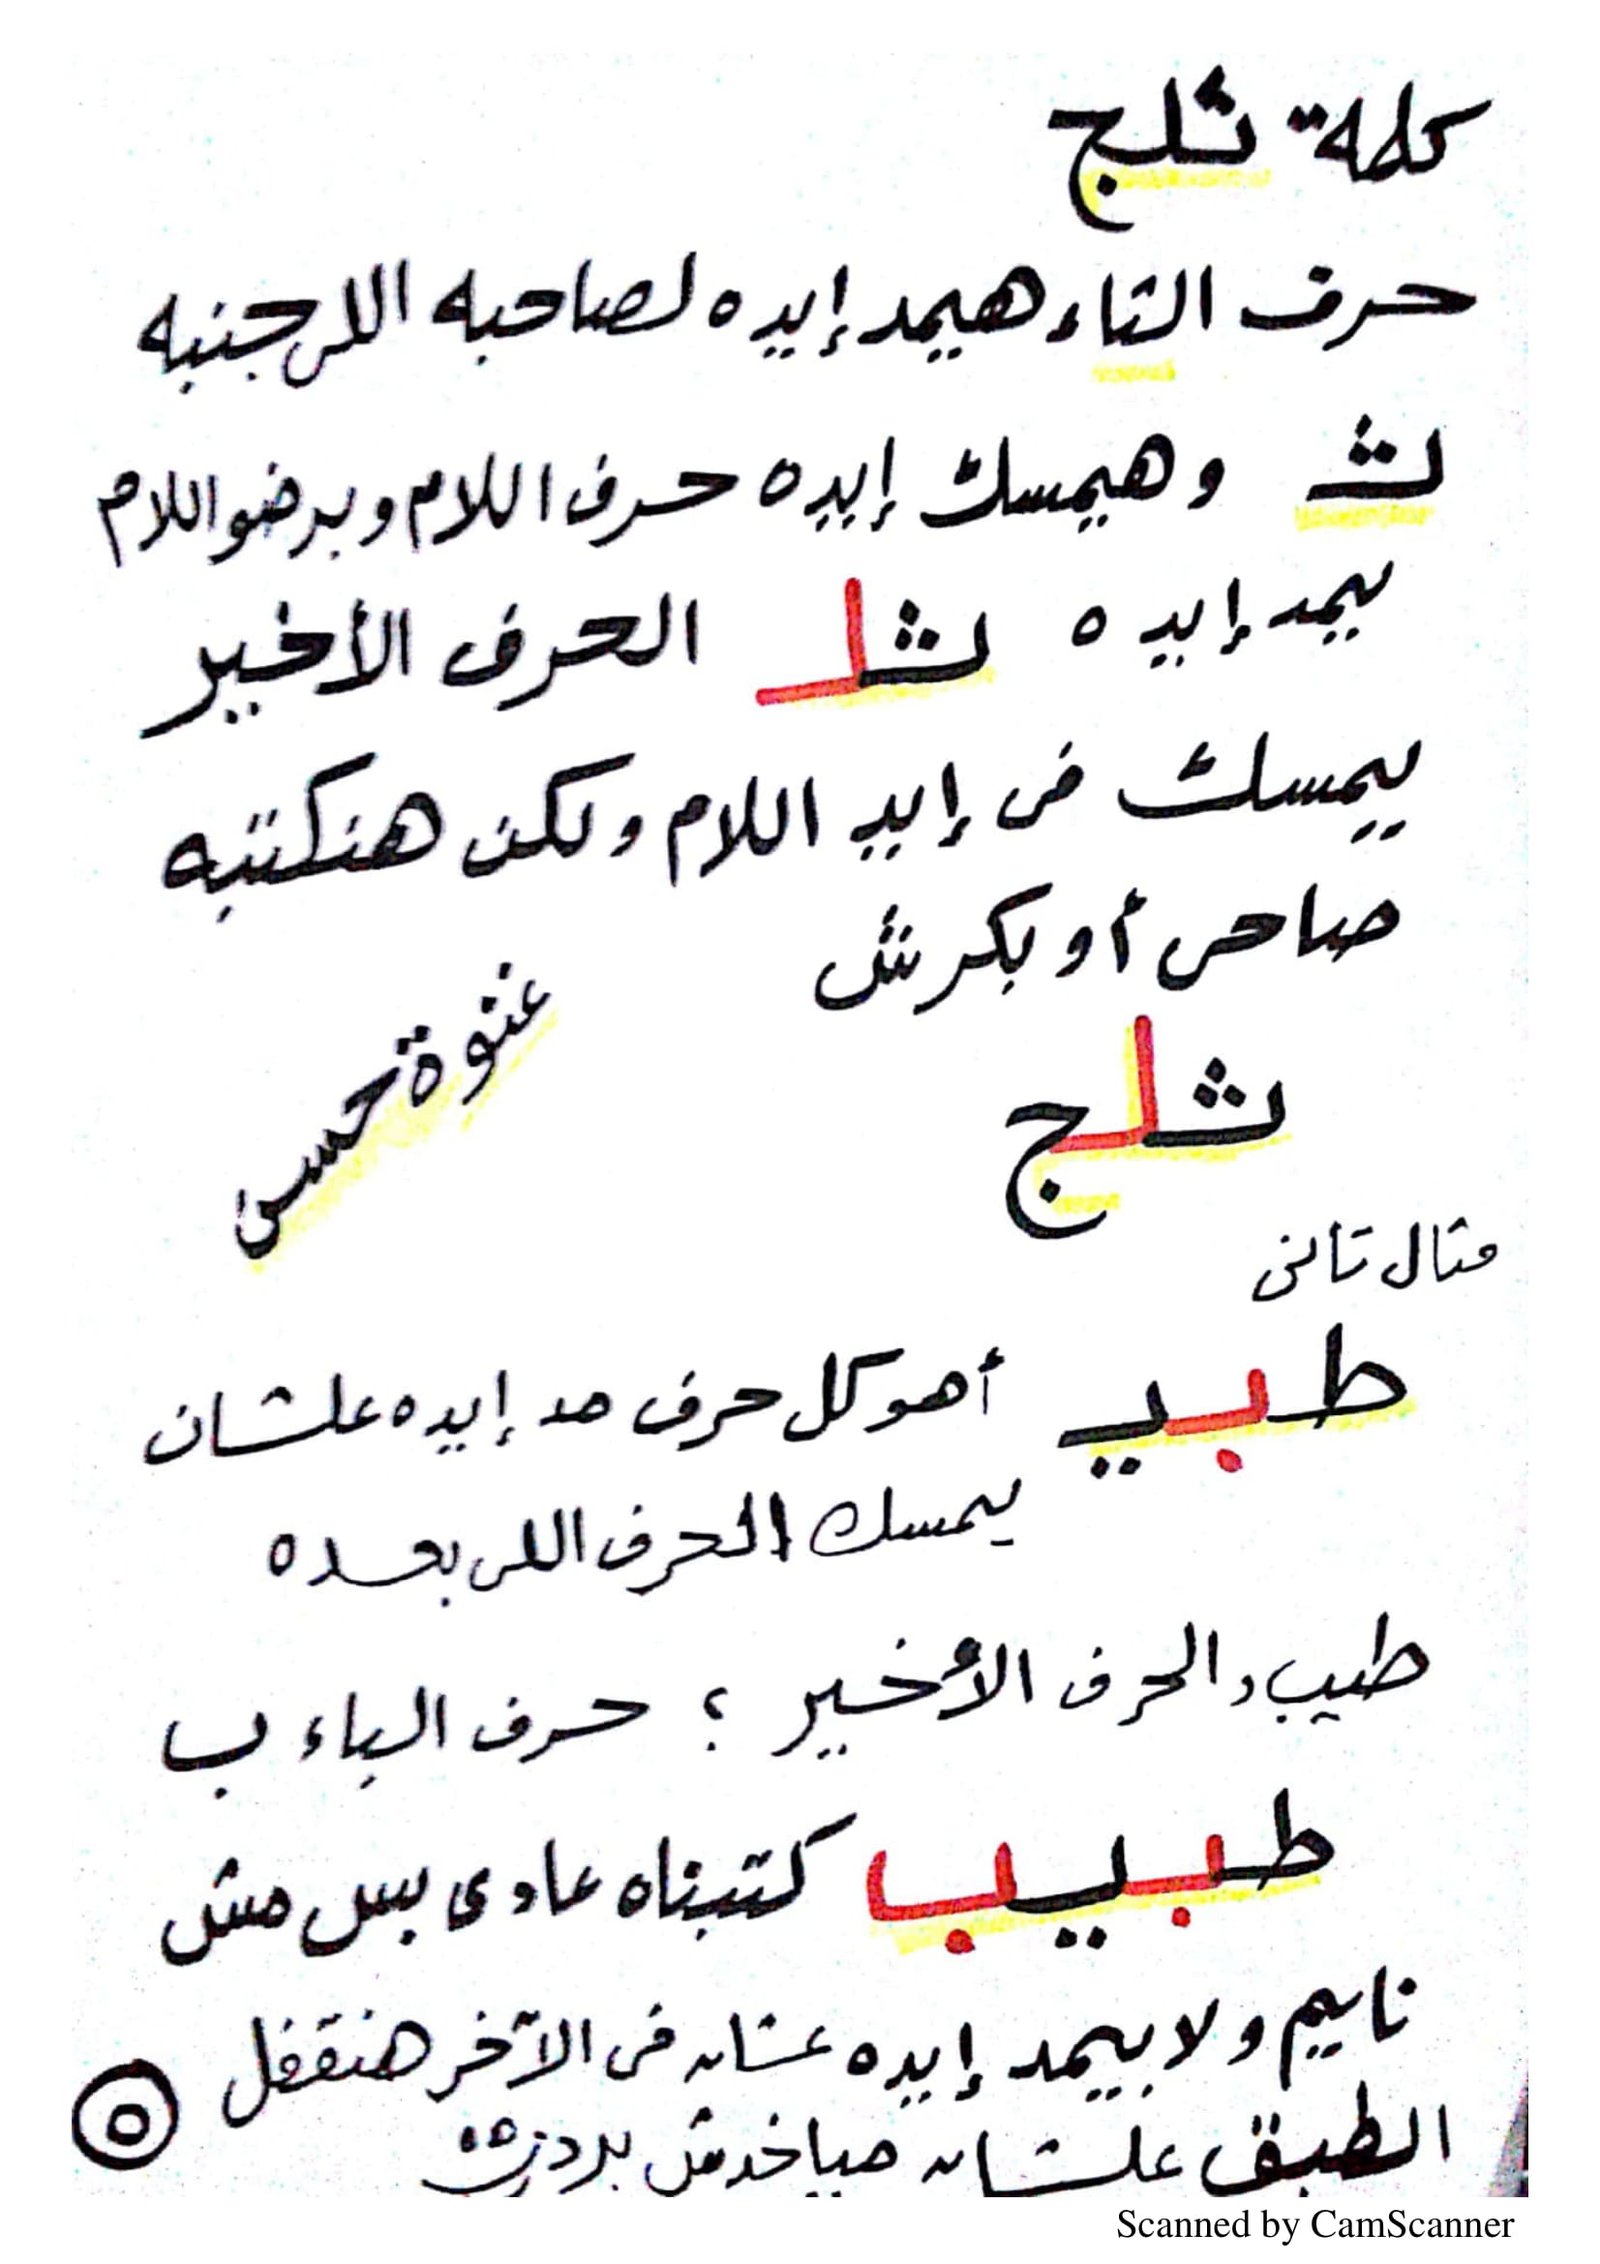 كلمة ثلج
حرف الثاء هيمد إيده لصاحبه اللى جنبه
ثـ وهيمسك إيده حرف اللام وبرضو اللام
يمد إيده ثلـ الحرف الأخير
يمسك فى إيد اللام ولكن هنكتبه
صاحى أو بكرش
ثلج
عنوة حسن
مثال تانى
طبيـ أهو كل حرف مد إيده علشان
يمسك الحرف اللى بعده
طيب والحرف الأخير ؟ حرف الباء ب
طبيب كتبناه عادى بس مش
نايم ولا بيمد إيده عشان فى الآخر هنقفل
الطبق علشان مياخدش برد
٥
Scanned by CamScanner